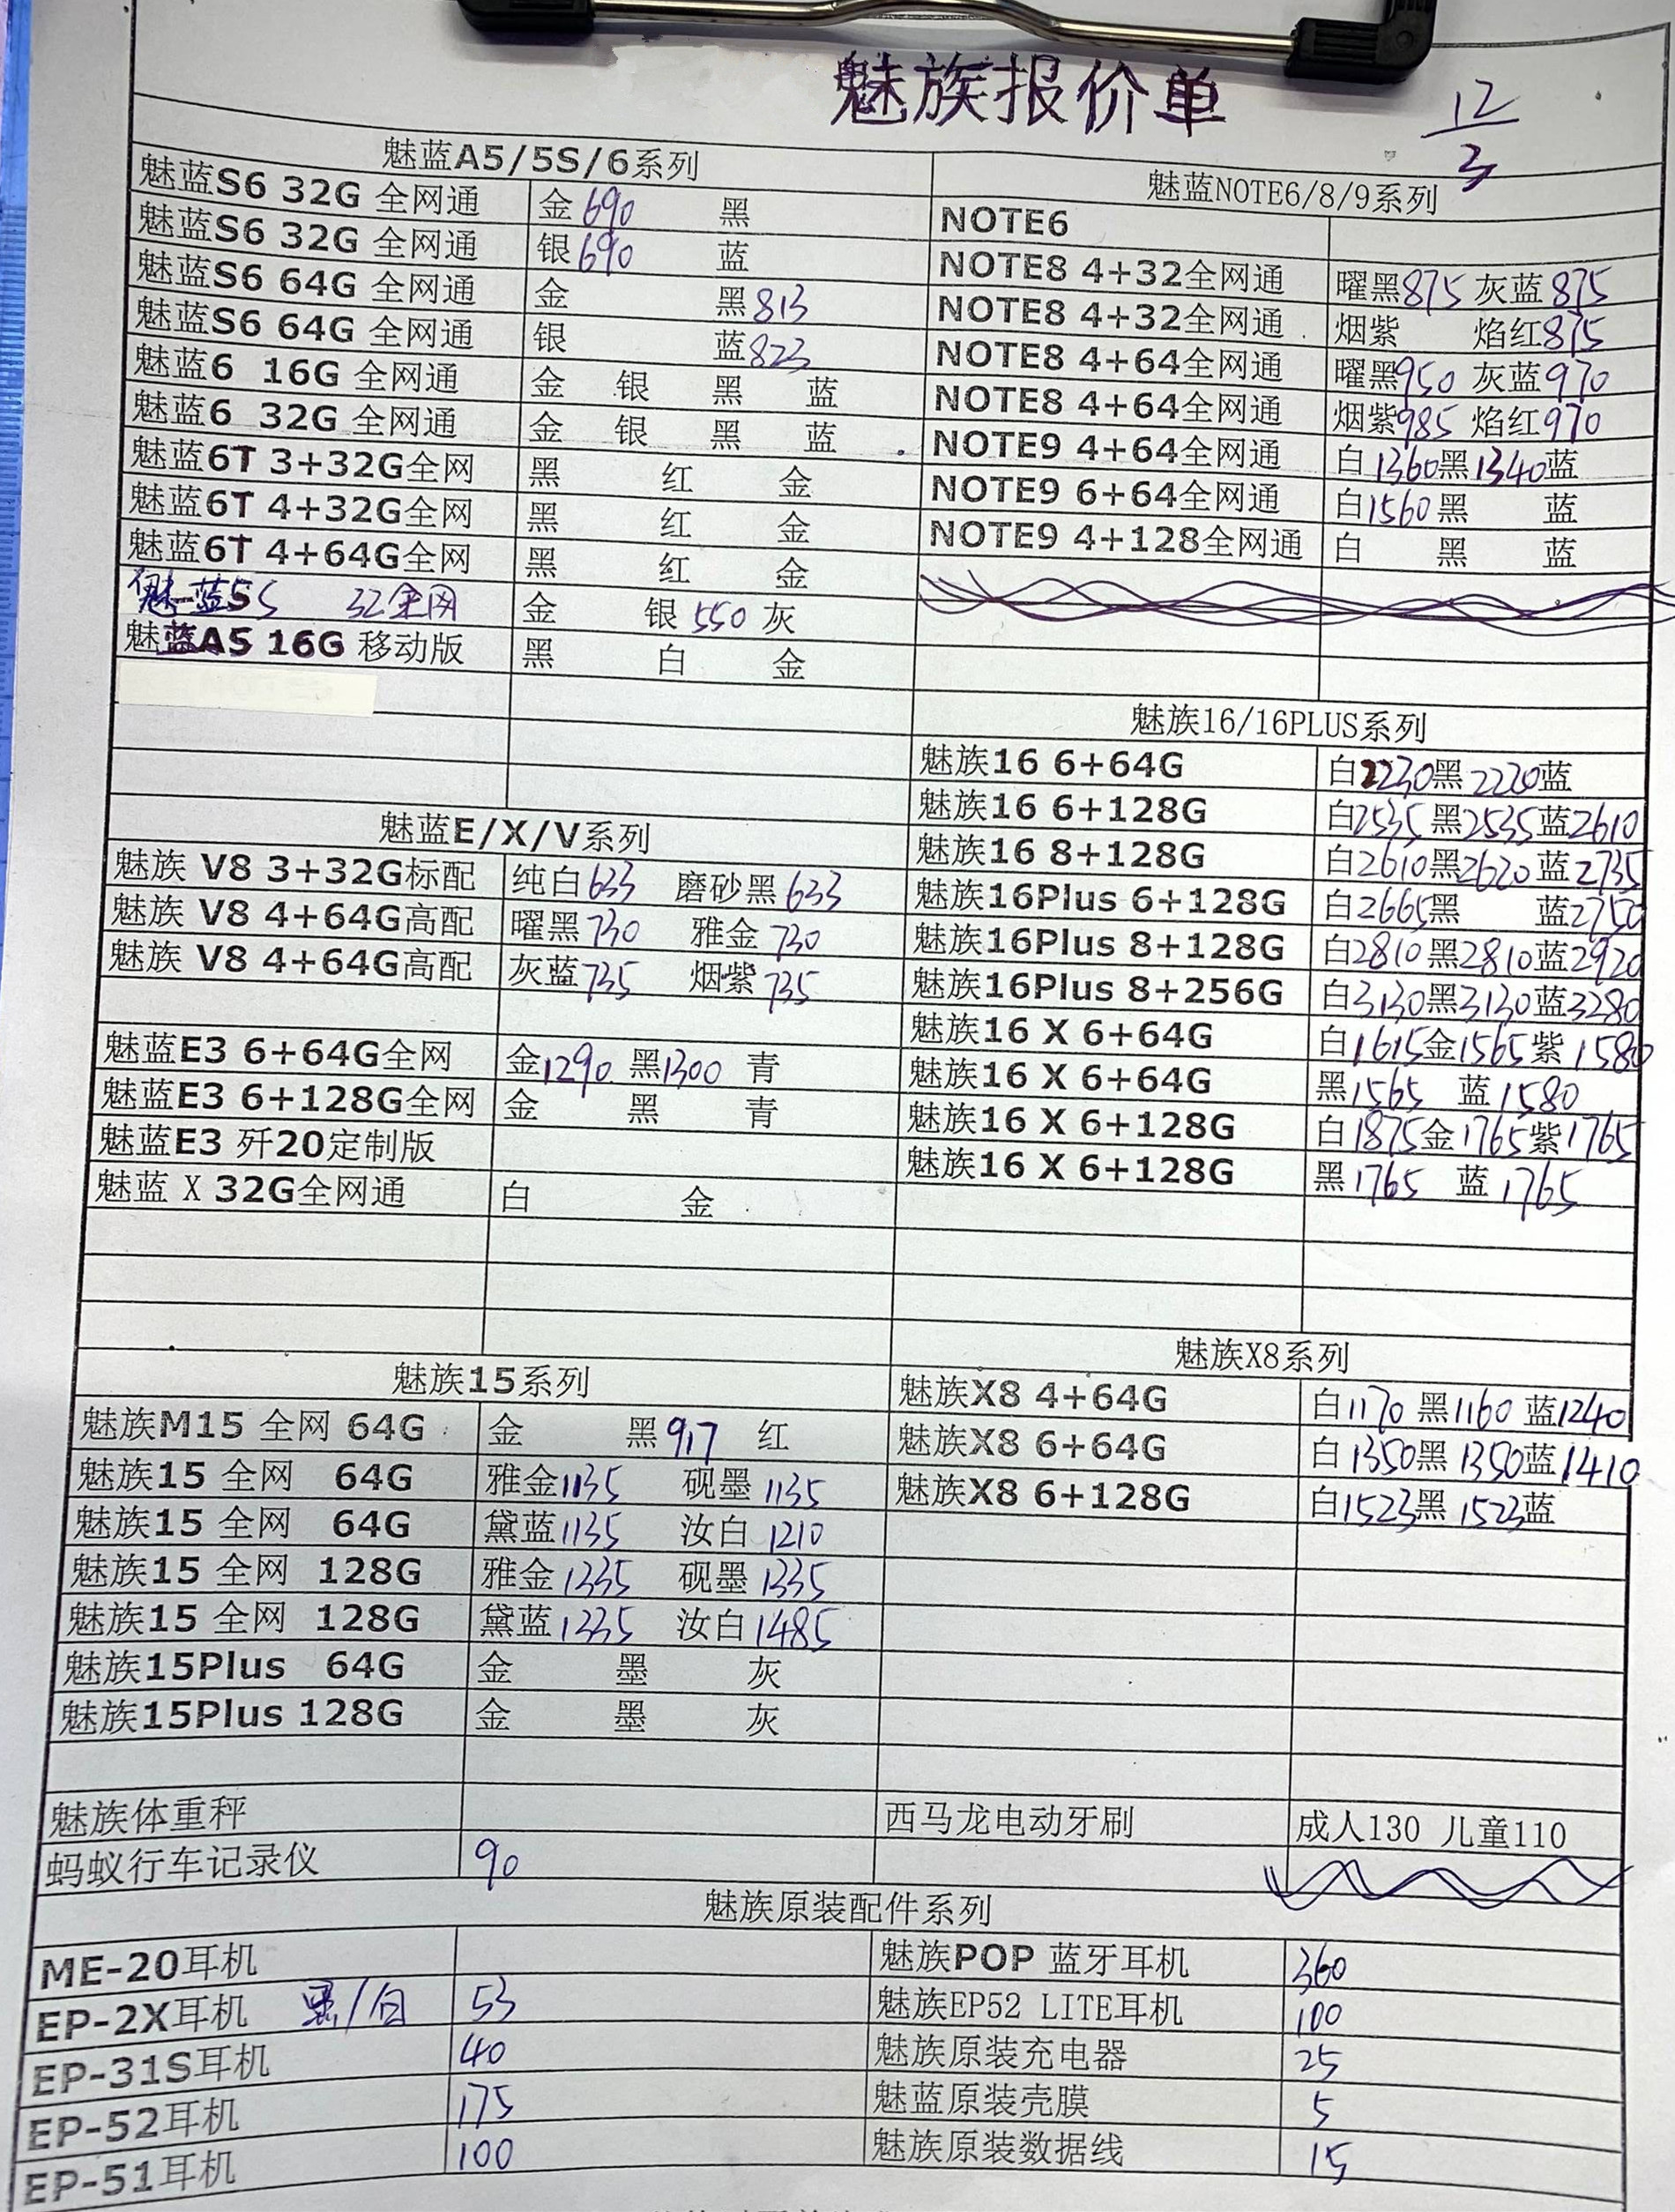 魅族报价单
12/3
魅蓝A5/5S/6系列
魅蓝S6 32G 全网通 金690 黑
魅蓝S6 32G 全网通 银690 蓝
魅蓝S6 64G 全网通 金 黑813
魅蓝S6 64G 全网通 银 蓝823
魅蓝6 16G 全网通 金 银 黑 蓝
魅蓝6 32G 全网通 金 银 黑 蓝
魅蓝6T 3+32G全网 黑 红 金
魅蓝6T 4+32G全网 黑 红 金
魅蓝6T 4+64G全网 黑 红 金
魅蓝5S 32全网 金 银550 灰
魅蓝A5 16G 移动版 黑 白 金
魅蓝NOTE6/8/9系列
NOTE6
NOTE8 4+32全网通 曜黑875 灰蓝875
NOTE8 4+32全网通 烟紫 焰红875
NOTE8 4+64全网通 曜黑950 灰蓝970
NOTE8 4+64全网通 烟紫985 焰红970
NOTE9 4+64全网通 白1360黑1340蓝
NOTE9 6+64全网通 白1560黑 蓝
NOTE9 4+128全网通 白 黑 蓝
魅蓝E/X/V系列
魅族 V8 3+32G标配 纯白633 磨砂黑633
魅族 V8 4+64G高配 曜黑730 雅金730
魅族 V8 4+64G高配 灰蓝735 烟紫735
魅蓝E3 6+64G全网 金1290 黑1300 青
魅蓝E3 6+128G全网 金 黑 青
魅蓝E3 歼20定制版
魅蓝 X 32G全网通 白 金
魅族16/16PLUS系列
魅族16 6+64G 白2230黑2220蓝
魅族16 6+128G 白2535黑2535蓝2610
魅族16 8+128G 白2610黑2620蓝2735
魅族16Plus 6+128G 白2665黑 蓝2750
魅族16Plus 8+128G 白2810黑2810蓝2920
魅族16Plus 8+256G 白3130黑3130蓝3280
魅族16 X 6+64G 白1615金1565紫1580
魅族16 X 6+64G 黑1565 蓝1580
魅族16 X 6+128G 白1875金1765紫1765
魅族16 X 6+128G 黑1765 蓝1765
魅族15系列
魅族M15 全网 64G 金 黑917 红
魅族15 全网 64G 雅金1135 砚墨1135
魅族15 全网 64G 黛蓝1135 汝白1210
魅族15 全网 128G 雅金1335 砚墨1335
魅族15 全网 128G 黛蓝1335 汝白1485
魅族15Plus 64G 金 墨 灰
魅族15Plus 128G 金 墨 灰
魅族X8系列
魅族X8 4+64G 白1170黑1160蓝1240
魅族X8 6+64G 白1350黑1350蓝1410
魅族X8 6+128G 白1523黑1523蓝
魅族体重秤 西马龙电动牙刷 成人130 儿童110
蚂蚁行车记录仪 90
魅族原装配件系列
ME-20耳机 魅族POP 蓝牙耳机 360
EP-2X耳机 黑/白 53 魅族EP52 LITE耳机 100
EP-31S耳机 40 魅族原装充电器 25
EP-52耳机 175 魅蓝原装壳膜 5
EP-51耳机 100 魅族原装数据线 15